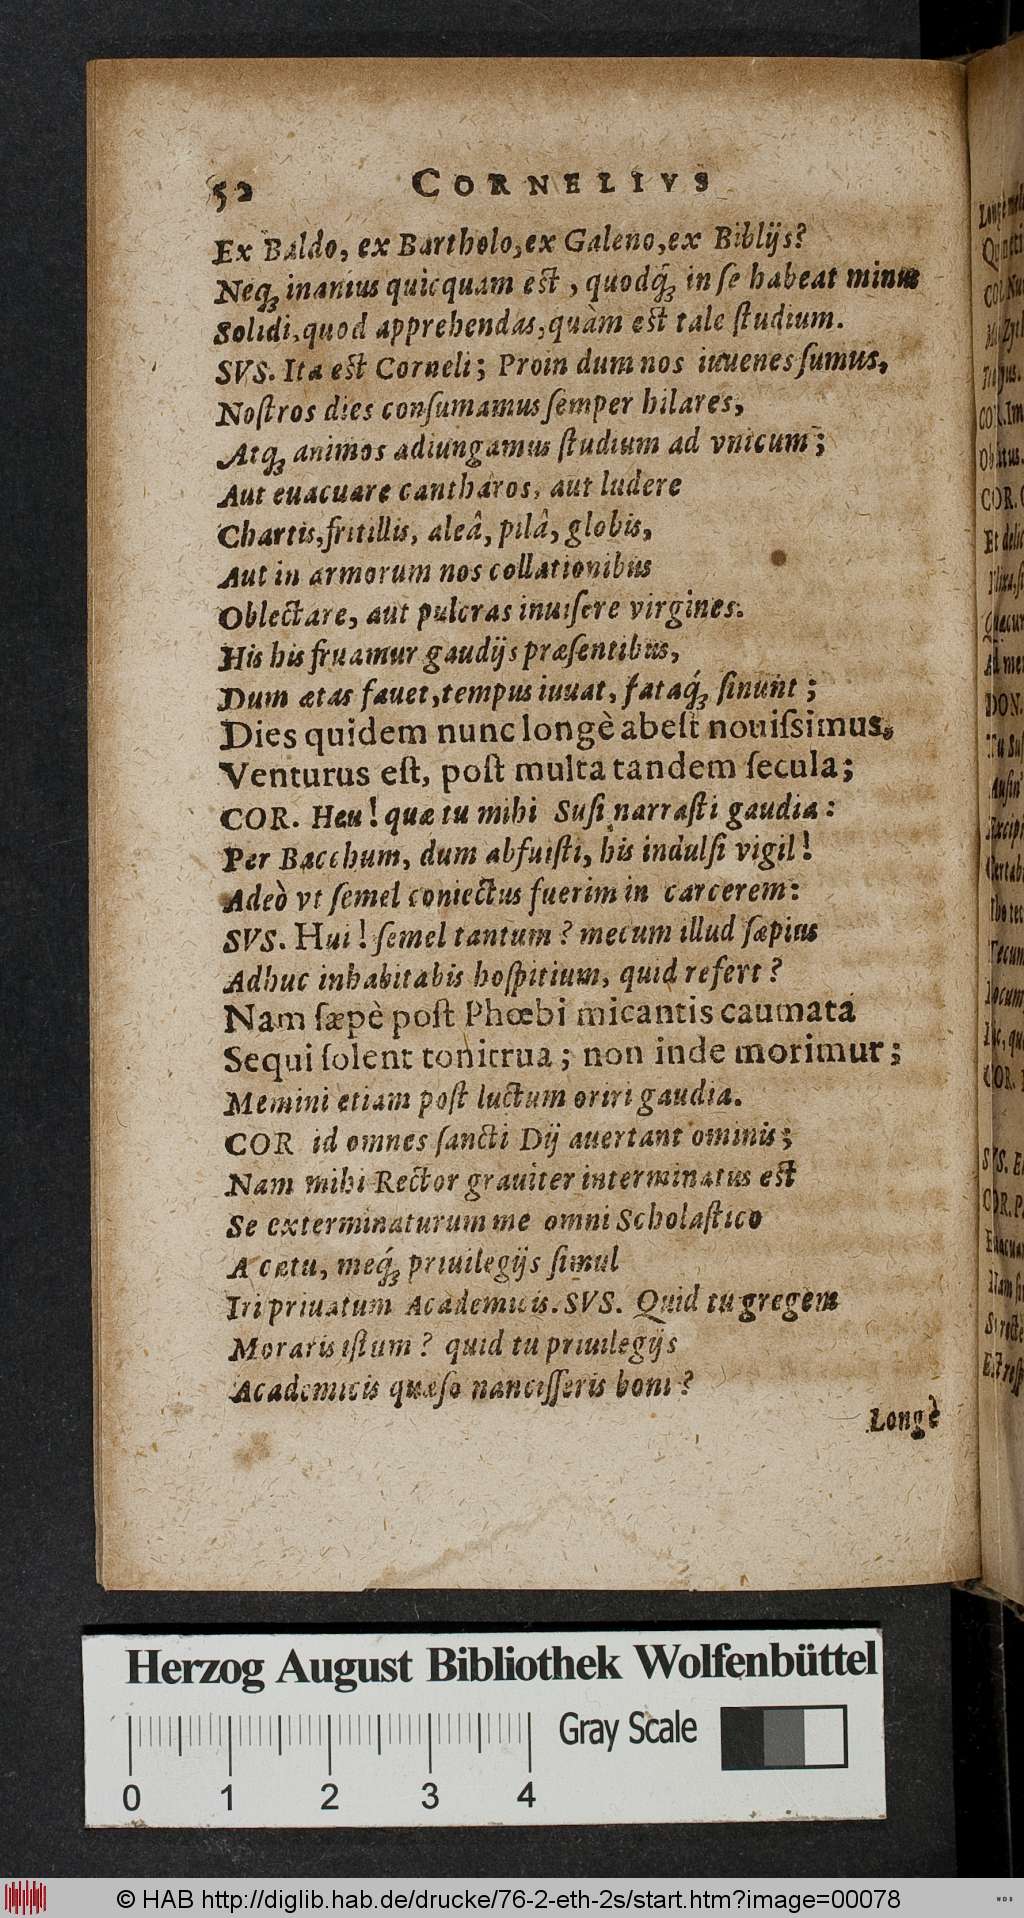 52 CORNELIVS
Ex Baldo, ex Bartholo, ex Galeno, ex Biblijs?
Neq́ꝫ inanius quicquam est, quodq́ꝫ in se habeat minus
Solidi, quod apprehendas, quàm est tale ſtudium.
SVS. Ita est Corneli; Proin dum nos iuuenes ſumus,
Noſtros dies conſumamus ſemper hilares,
Atq́ꝫ animos adiungamus ſtudium ad vnicum;
Aut euacuare cantharos, aut ludere
Chartis, fritillis, aleâ, pilâ, globis,
Aut in armorum nos collationibus
Oblectare, aut pulcras inuiſere virgines.
His his fruamur gaudijs præſentibus,
Dum ætas fauet, tempus iuuat, fataq́ꝫ ſinunt;
Dies quidem nunc longè abeſt nouiſsimus,
Venturus eſt, poſt multa tandem ſecula;
COR. Heu! quæ tu mihi Suſi narraſti gaudia:
Per Bacchum, dum abfuiſti, his indulſi vigil!
Adeò vt ſemel coniectus fuerim in carcerem:
SVS. Hui! ſemel tantum? mecum illud ſæpius
Adhuc inhabitabis hoſpitium, quid refert?
Nam ſæpè poſt Phœbi micantis caumata
Sequi ſolent tonitrua; non inde morimur;
Memini etiam poſt luctum oriri gaudia.
COR id omnes ſancti Dij auertant ominis;
Nam mihi Rector grauiter interminatus est
Se exterminaturum me omni Scholaſtico
A cætu, meq́ꝫ priuilegijs ſimul
Iri priuatum Academicis. SVS. Quid tu gregem
Moraris iſtum? quid tu priuilegijs
Academicis quæſo nanciſſeris boni?
Longè
Herzog August Bibliothek Wolfenbüttel
Gray Scale
0 1 2 3 4
© HAB http://diglib.hab.de/drucke/76-2-eth-2s/start.htm?image=00078